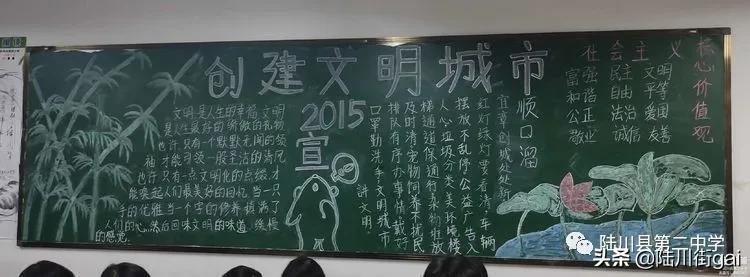 创建文明城市
文明,是人生的幸福,文明
是人生最好的
也许只有一个默默无闻的领
袖,才能引领一股圣洁的清风
也许只有一点文明化的点缀,才
能唤起人们最美好的回忆,当一只
手的优雅,当一个字的修养,填满了
人们的心,然后回味文明的味道,缓慢
的感觉。
2015
宣
顺口溜
宜章创城处处新
红灯绿灯要看清,车辆
摆放不乱停,公益广告入
人心,垃圾分类美环境,楼
梯通道保通行,杂物堆放
及时清,宠物饲养不扰民
排队有序办事情,戴好
口罩勤洗手,文明城市
讲文明
社会主义核心价值观
富强 民主 文明
和谐 自由 平等
公正 法治 爱国
敬业 诚信 友善
陆川县第二中学
头条 @陆川街gai